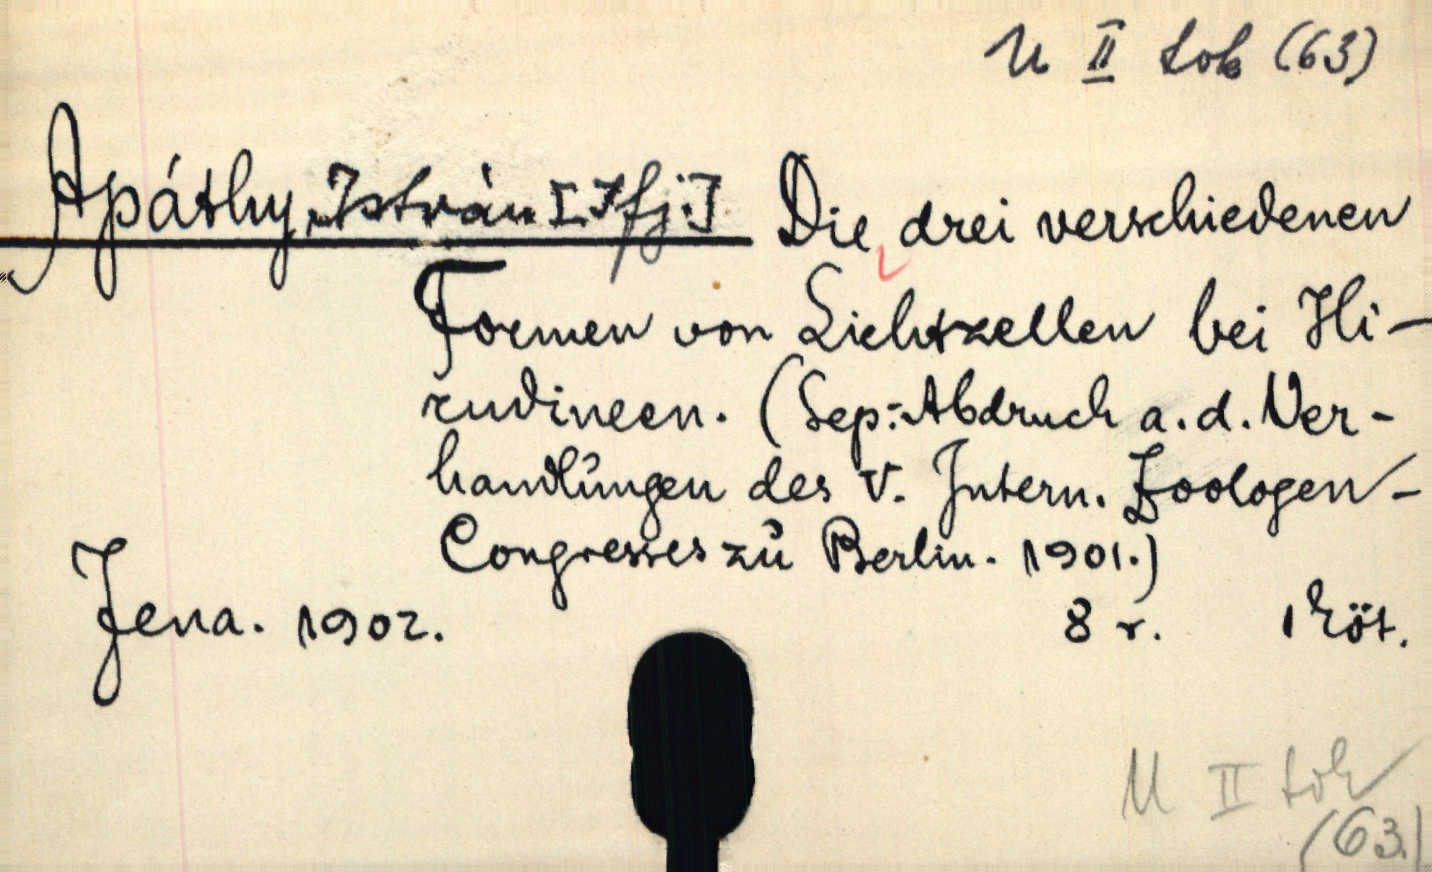 U II tok (63)
Apáthy, István [Ifj.] Die drei verschiedenen
Formen von Lichtzellen bei Hi-
rudineen. (Sep.-Abdruck a. d. Ver-
handlŭngen des V. Intern. Zoologen-
Congresses zŭ Berlin. 1901.)
Jena. 1902. 8 r. 1 köt.
U II tok
(63.)